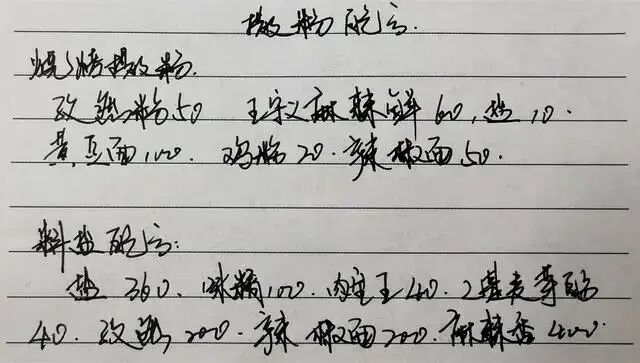 撒粉配方.
烧烤撒粉.
孜然粉50 王守义麻辣鲜60,盐10.
黄豆面100. 鸡精20. 辣椒面50.
料盐配方:
盐360、味精100. 肉宝王40.乙基麦芽酚
40. 孜然200. 辣椒面200. 麻辣香400.